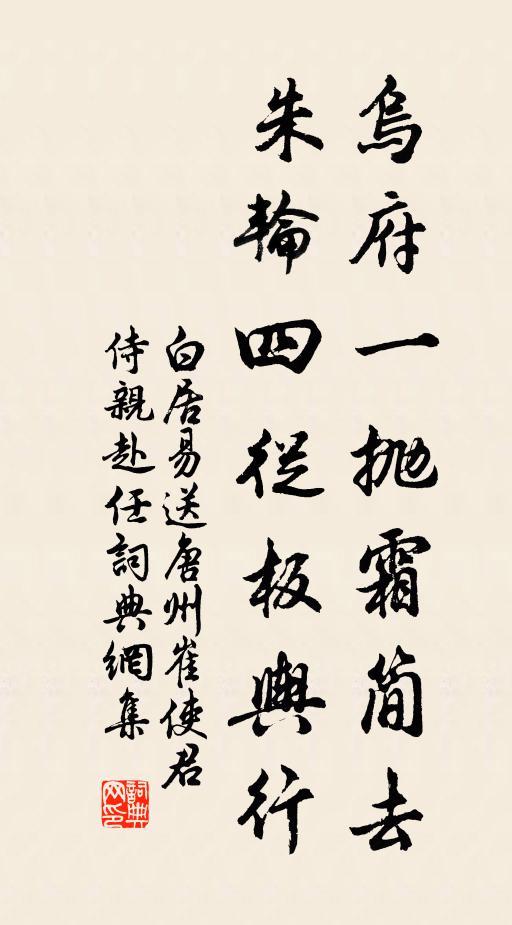 烏府一拋霜簡去
朱輪四從板輿行
白居易送唐州崔使君
侍親赴任詞典網集
詞典网印